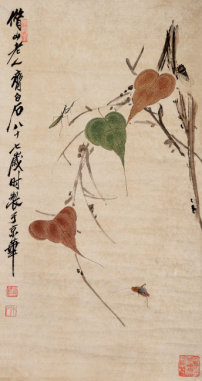 借山老人齊白石八十七歲時製于京華